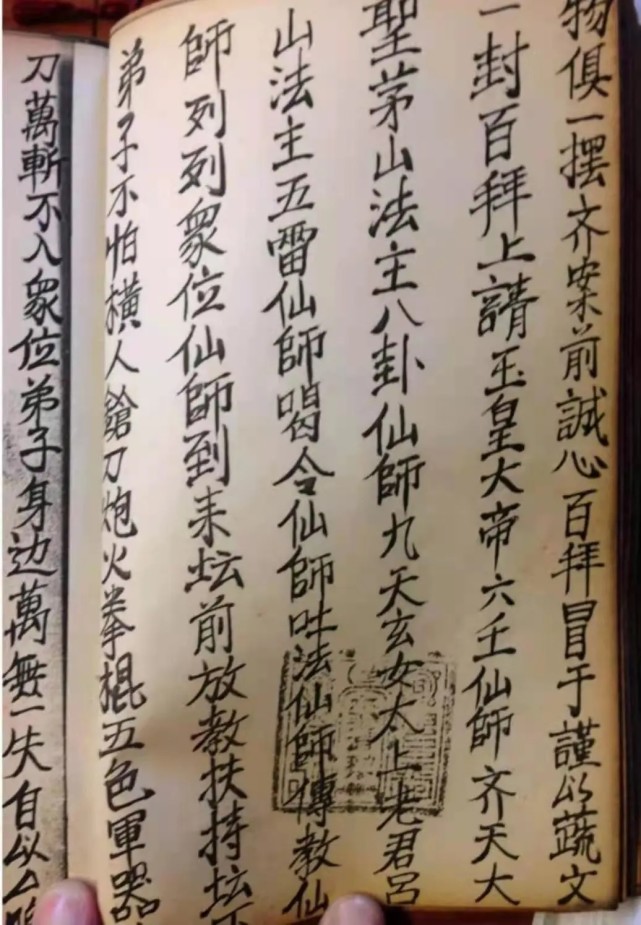 物俱一摆齐案前誠心百拜冒于謹以蔬文
一封百拜上請玉皇大帝六壬仙師齐天大
聖茅山法主八卦仙師九天玄女太上老君呂
山法主五雷仙師喝令仙師吐法仙師傳教仙
師列列眾位仙師到来坛前放教扶持坛
弟子不怕横人鎗刀炮火拳棍五色軍器
刀萬斬不入眾位弟子身边萬無一失自以